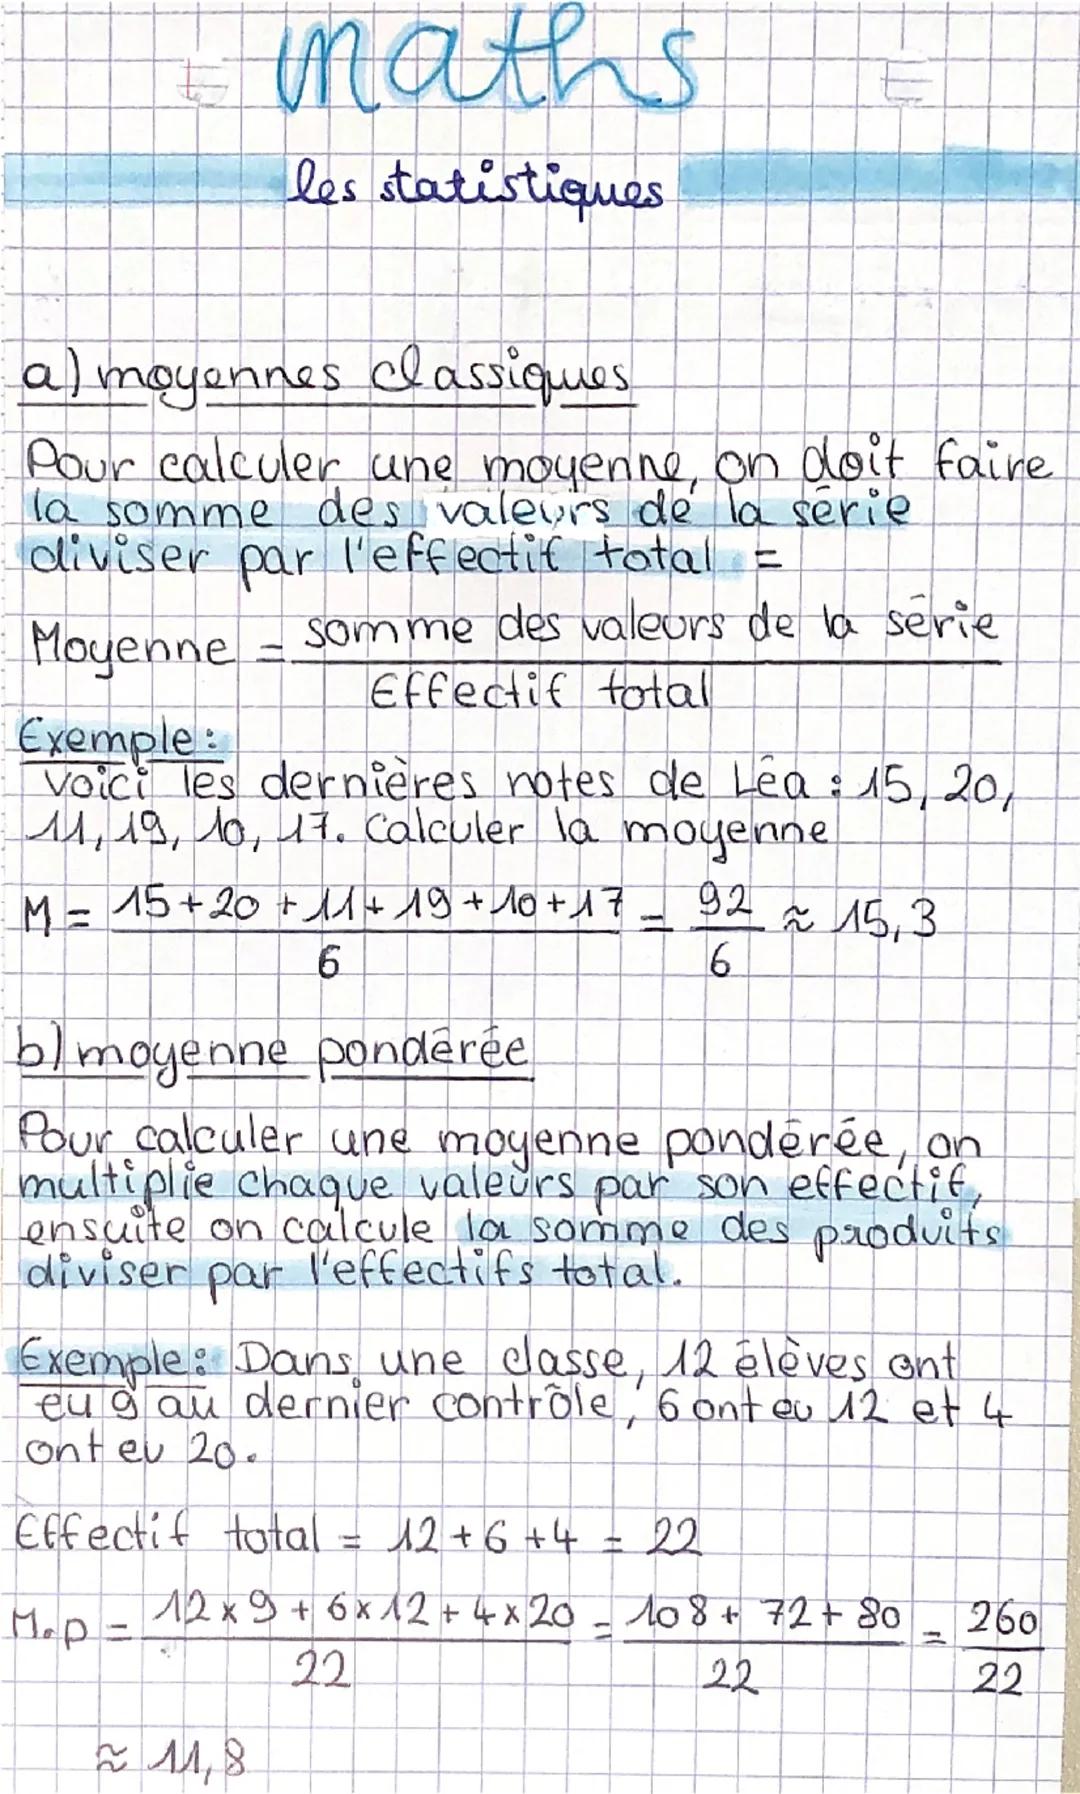 maths
les statistiques
a) moyennes classiques
Pour calculer une moyenne, on doit faire
la somme des valeurs de la série
diviser par l'effectif total =
Moyenne = somme des valeurs de la série / Effectif total
Exemple :
voici les dernières notes de Léa : 15, 20,
11, 19, 10, 17. Calculer la moyenne
M = 15 + 20 + 11 + 19 + 10 + 17 / 6 = 92 / 6 ≈ 15,3
b) moyenne pondérée
Pour calculer une moyenne pondérée, on
multiplie chaque valeurs par son effectif,
ensuite on calcule la somme des produits
diviser par l'effectifs total.
Exemple : Dans une classe, 12 élèves ont
eu 9 au dernier contrôle, 6 ont eu 12 et 4
ont eu 20.
Effectif total = 12 + 6 + 4 = 22
M.p = 12 x 9 + 6 x 12 + 4 x 20 / 22 = 108 + 72 + 80 / 22 = 260 / 22
≈ 11,8